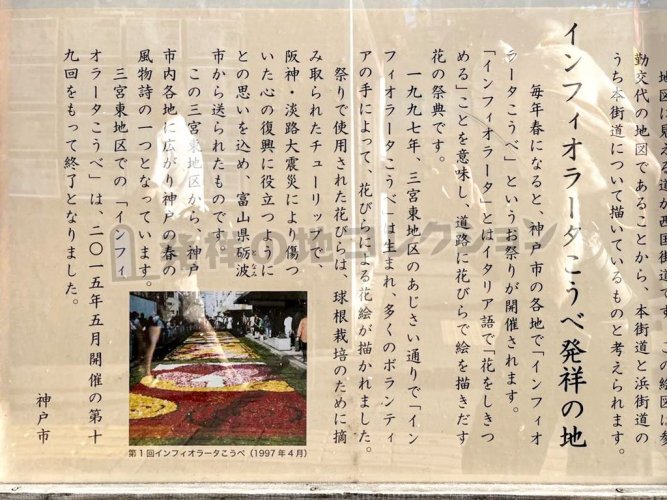 勤交代の地図であることから、本街道と浜街道の
うち本街道について描いているものと考えられます。
インフィオラータこうべ発祥の地
毎年春になると、神戸市の各地で「インフィオ
ラータこうべ」というお祭りが開催されます。
「インフィオラータ」とはイタリア語で「花をしきつ
める」ことを意味し、道路に花びらで絵を描きだす
花の祭典です。
一九九七年、三宮東地区のあじさい通りで「イン
フィオラータこうべ」は生まれ、多くのボランティ
アの手によって、花びらによる花絵が描かれました。
祭りで使用された花びらは、球根栽培のために摘
み取られたチューリップで、
阪神・淡路大震災により傷つ
いた心の復興に役立つように
との思いを込め、富山県砺波
市から送られたものです。
この三宮東地区から、神戸
市内各地に広がり神戸の春の
風物詩の一つとなっています。
三宮東地区での「インフィ
オラータこうべ」は、二〇一五年五月開催の第十
九回をもって終了となりました。
神戸市
第1回インフィオラータこうべ（1997年4月）
発祥の地コレクション